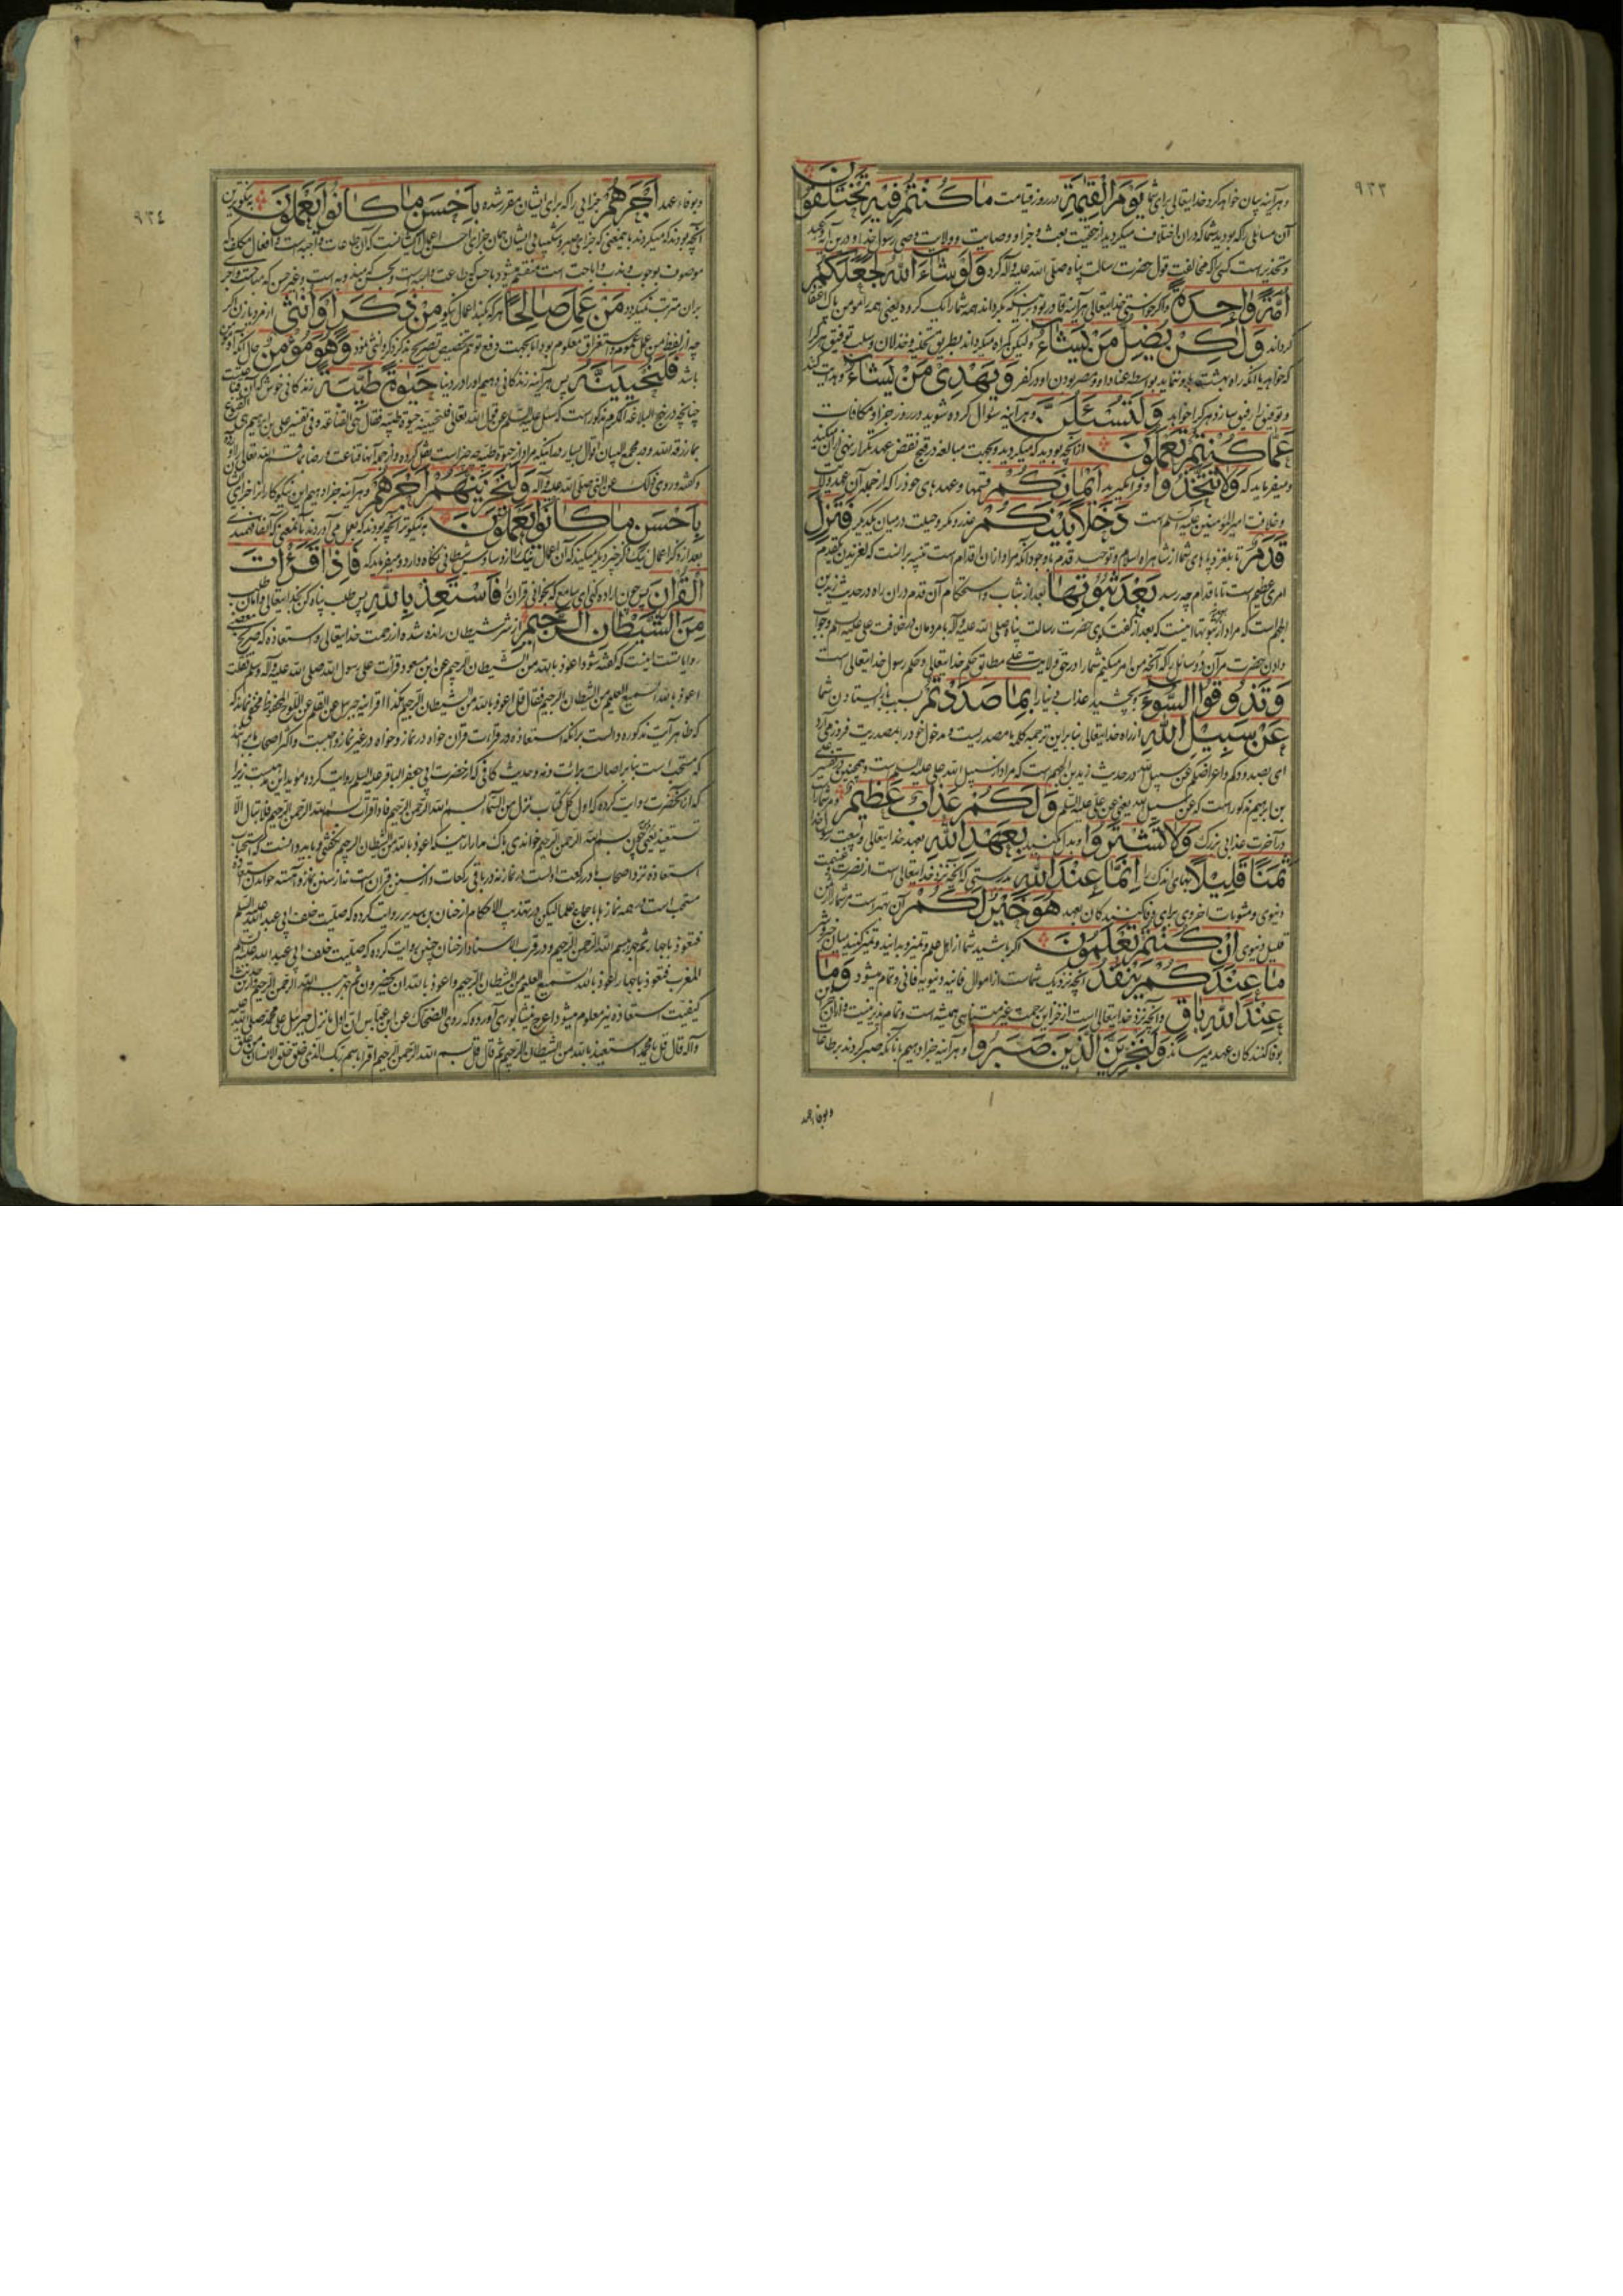 ٩٣٣
وهر آینه بیان خواهد کرد خدایتعالی برای شما یَوْمَ الْقِیٰمَةِ در روز قیامت مَا كُنْتُمْ فِیهِ تَخْتَلِفُونَ
آن مسائلی را که بودید شما که در آن اختلاف میکردید از حقیت بعث و جزا و وصایت و ولایت وصی رسول خدا و درین آیه
وتحذیر است کسی را که مخالفت قول حضرت رسالت پناه صلی الله علیه وآله کرد وَلَوْ شَاءَ اللهُ لَجَعَلَكُمْ
اُمَّةً وَاحِدَةً واگر خواستی خدایتعالی هر آینه قادر بود بر اینکه بگرداند همه شما را یک گروه یعنی همه را مومن پاک اعتقاد
گرداند وَلٰكِنْ یُضِلُّ مَنْ یَشَاءُ ولیکن گمراه میگرداند بطریق تخلیه و خذلان و سلب توفیق هر کرا
که خواهد یا آنکه راه بهشت باو ننماید بواسطه عناد او و مصر بودن او در کفر وَیَهْدِی مَنْ یَشَاءُ وهدایت کند
وتوفیق را رفیق سازد هر کرا خواهد وَلَتُسْئَلُنَّ وهر آینه سؤال کرده شوید در روز جزا و مکافات
عَمَّا كُنْتُمْ تَعْمَلُونَ از آنچه بودید که میکردید وبجهت مبالغه در قبح نقض عهد تکرار نهی از آن میکند
ومیفرماید که وَلَا تَتَّخِذُوا وفرا مگیرید اَیْمَانَكُمْ قسمها وعهدهای خود را که از جمله آن عهد ولایت
وخلافت امیر المؤمنین علیه السلم است دَخَلًا بَیْنَكُمْ غدر ومکر وحیلت در میان یکدیگر فَتَزِلَّ
قَدَمٌ تا بلغزد پاهای شما از شاهراه اسلام وتوحید قدم با وجود آنکه مراد از آن اقدام است تنبیه بر آنست که لغزیدن یکقدم
امری عظیم است تا باقدام چه رسد بَعْدَ ثُبُوتِهَا بعد از ثبات واستحکام آن قدم در آن راه و در حدیث زید بن
الجهم است که مراد از ثبوتها اینست که بعد از گفت وگوی حضرت رسالت پناه صلی الله علیه وآله با مردمان در خلافت علی علیه السلم وجواب
دادن حضرت مر آن دو سائل را که آنچه من امر میکنم شما را در حق ولایت علی مطابق حکم خدایتعالی وحکم رسول خدایتعالی است
وَتَذُوقُوا السُّوءَ وبچشید عذاب دنیا را بِمَا صَدَدْتُمْ بسبب باز ایستادن شما
عَنْ سَبِیلِ اللهِ از راه خدایتعالی بنابراین ترجمه کلمه ما مصدریست ومدخول خود را بمصدریت فرو می آرد
ای بصدودکم واعراضکم عن سبیل الله در حدیث زید بن الجهم است که مراد از سبیل الله علی علیه السلم است وهمچنین در تفسیر علی
بن ابرهیم مذکور است که عن سبیل الله یعنی عن علی علیه السلم وَلَكُمْ عَذَابٌ عَظِیمٌ ومر شما راست
در آخرت عذابی بزرگ وَلَا تَشْتَرُوا وبدل مکنید بِعَهْدِ اللهِ بعهد خدایتعالی وبیعت رسول خدا
ثَمَنًا قَلِیلًا بهای اندک را اِنَّمَا عِنْدَ اللهِ بدرستی که آنچه نزد خدایتعالی است از نصرت وغنیمت
دنیوی ومثوبات اخروی برای وفا کنندگان بعهد هُوَ خَیْرٌ لَكُمْ آن بهتر است مر شما را از
قلیل دنیوی اِنْ كُنْتُمْ تَعْلَمُونَ اگر باشید شما از اهل علم وتمیز وبدانید وتمیز کنید میان خیر وشر
مَا عِنْدَكُمْ یَنْفَدُ آنچه نزدیک شماست از اموال فانیه دنیویه فانی وتمام میشود وَمَا
عِنْدَ اللهِ بَاقٍ وآنچه نزد خدایتعالی است از خزاین رحمت غیر متناهی همیشه است وتمام پذیر نیست
بوفا کنندگان عهد میرساند وَلَنَجْزِیَنَّ الَّذِینَ صَبَرُوا وهر آینه جزا دهیم بآنانکه صبر کردند بر طاعات
وبوفا عهد
٩٣٤
وبوفا عهد اَجْرَهُمْ جزایی را که برای ایشان مقرر شده بِاَحْسَنِ مَا كَانُوا یَعْمَلُونَ بنیکوترین
آنچه بودند که میکردند باینمعنی که جزای صبر وشکیبایی ایشان همان جزای احسن اعمال ایشانست که آن طاعات واجبه است وافعال مکلف که
موصوف بوجوب وندب واباحت است منقسم میشود باحسن که طاعت واجبه است وحسن که مندوبه است وغیر حسن که مباحست واجری
بر آن مترتب نمیگردد مَنْ عَمِلَ صَالِحًا هر که بکند اعمال نیکو مِنْ ذَكَرٍ اَوْ اُنْثٰی از مرد یا زن اگر
چه از لفظ من عمل عموم واستغراق معلوم بود اما بجهت دفع توهم تخصیص تصریح بذکر ذکر وانثی نمود وَهُوَ مُؤْمِنٌ حال آنکه او مومن
باشد فَلَنُحْیِیَنَّهُ پس هر آینه زندگانی دهیم او را در دنیا حَیٰوةً طَیِّبَةً زندگانی خوش که آن قناعتست
چنانچه در نهج البلاغه المکرم مذکور است که سئل علیه السلم عن قول الله تعالی فلنحیینه حیوة طیبة فقال هی القناعة وفی تفسیر علی بن ابرهیم هی القنوع
بما رزقه الله ودر مجمع البیان اقوال بسیار در اینکه مراد از حیوة طیبه چه چیز است نقل کرده واز جمله آنها قناعت ورضا بما قسم الله تعالی را آورده
وگفته وروی ذلک عن النبی صلی الله علیه وآله وَلَنَجْزِیَنَّهُمْ اَجْرَهُمْ وهر آینه جزا دهیم این نیکوکاران را جزای
بِاَحْسَنِ مَا كَانُوا یَعْمَلُونَ به نیکوتر آنچه بودند که بعمل می آوردند
بعد از ذکر اعمال نیک ذکر چیز دیگر میکند که آن اعمال نیک را از وساوس شیطانی نگاه دارد ومیفرماید که فَاِذَا قَرَأْتَ
الْقُرْاٰنَ پس چون اراده کنی ای سامع که بخوانی قرآن را فَاسْتَعِذْ بِاللهِ پس طلب پناه کن بخدایتعالی وامان طلب
مِنَ الشَّیْطَانِ الرَّجِیمِ از شر شیطان رانده شده از رحمت خدایتعالی واستعاذه که صریح بعضی
روایاتست اینست که گفته شود اعوذ بالله من الشیطان الرجیم عن ابن مسعود قرات علی رسول الله صلی الله علیه وآله وسلم فقلت
اعوذ بالله السمیع العلیم من الشیطان الرجیم فقال قل اعوذ بالله من الشیطان الرجیم هکذا اقرأنیه جبریل عن القلم عن اللوح المحفوظ مخفی نماند که
که ظاهر آیت مذکوره دالست بر آنکه استعاذه در قراءت قران خواه در نماز وخواه در غیر نماز واجبست واکثر اصحاب ما بر آنند
که مستحب است بنابر اصالت برائت ذمه وحدیث کافی که از حضرت ابی جعفر الباقر علیه السلم روایت کرده مؤید این مذهبست زیرا
که از آنحضرت روایت کرده که اول کل کتاب نزل من السماء بسم الله الرحمن الرحیم فاذا قرأت بسم الله الرحمن الرحیم فلا تبال الا
تستعیذ یعنی چون بسم الله الرحمن الرحیم خواندی باک مدار از اینکه اعوذ بالله من الشیطان الرحیم نگفتی وباید دانست که استحباب
استعاذه نزد اصحاب ما در رکعت اولست در نماز نه در باقی رکعات واز سنن قران است نه از سنن نماز وآهسته خواندن استعاذه
مستحب است در همه نمازها باجماع علما لیکن در تهذیب الاحکام از حنان بن سدیر روایت کرده که صلیت خلف ابی عبدالله علیه السلم
فتعوذ باجهار ثم جهر ببسم الله الرحمن الرحیم ودر قرب الاسناد از حنان چنین روایت کرده که صلیت خلف ابی عبدالله علیه السلم
المغرب فتعوذ باجهار اعوذ بالله السمیع العلیم من الشیطان الرجیم واعوذ بالله ان یحضرون ثم جهر ببسم الله الرحمن الرحیم
کیفیت استعاذه نیز معلوم میشود اعرج نیشابوری آورده که روی الضحاک عن ابن عباس ان اول ما نزل جبرئیل علی محمد صلی الله علیه
وآله قال قل یا محمد استعیذ بالله من الشیطان الرجیم ثم قال قل بسم الله الرحمن الرحیم اقرا باسم ربک الذی خلق خلق الانسان من علق